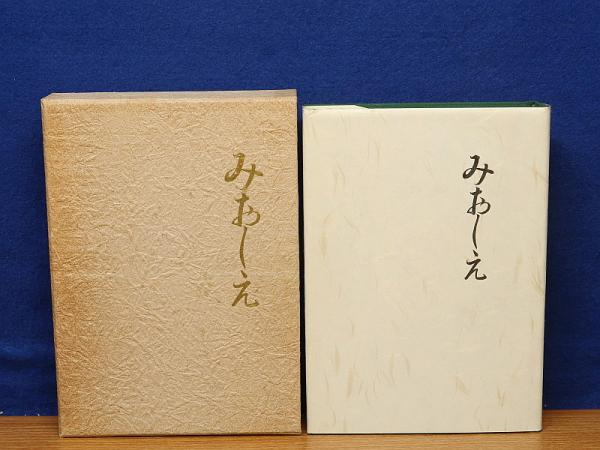 みおしえ
みおしえ